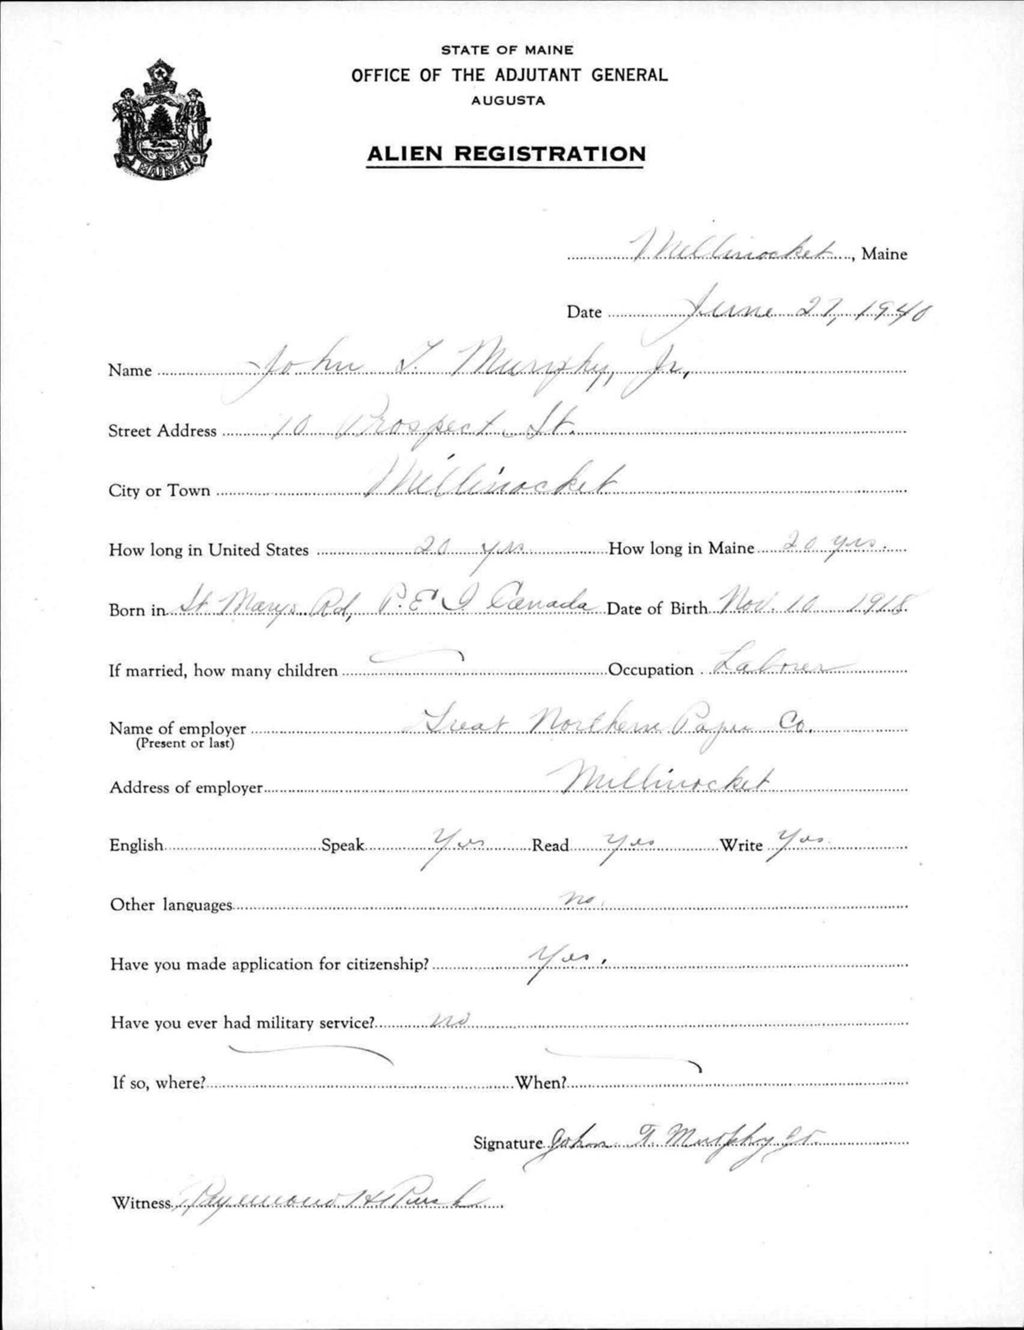 STATE OF MAINE
OFFICE OF THE ADJUTANT GENERAL
AUGUSTA
ALIEN REGISTRATION
MAINE
Millinocket, Maine
Date June 27, 1940
Name John T. Murphy, Jr,
Street Address 10 Prospect St.
City or Town Millinocket
How long in United States 20 yrs How long in Maine 20 yrs.
Born in St Marys Rd, P.E I Canada Date of Birth Nov. 10 1918
If married, how many children Occupation Laborer
Name of employer Great Northern Paper Co.
(Present or last)
Address of employer Millinocket
English Speak Yes Read Yes Write Yes
Other languages no.
Have you made application for citizenship? Yes.
Have you ever had military service? no
If so, where? When?
Signature John Murphy Jr.
Witness Raymond H